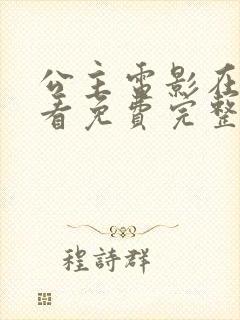 公主电影在
看免費完整
程詩群